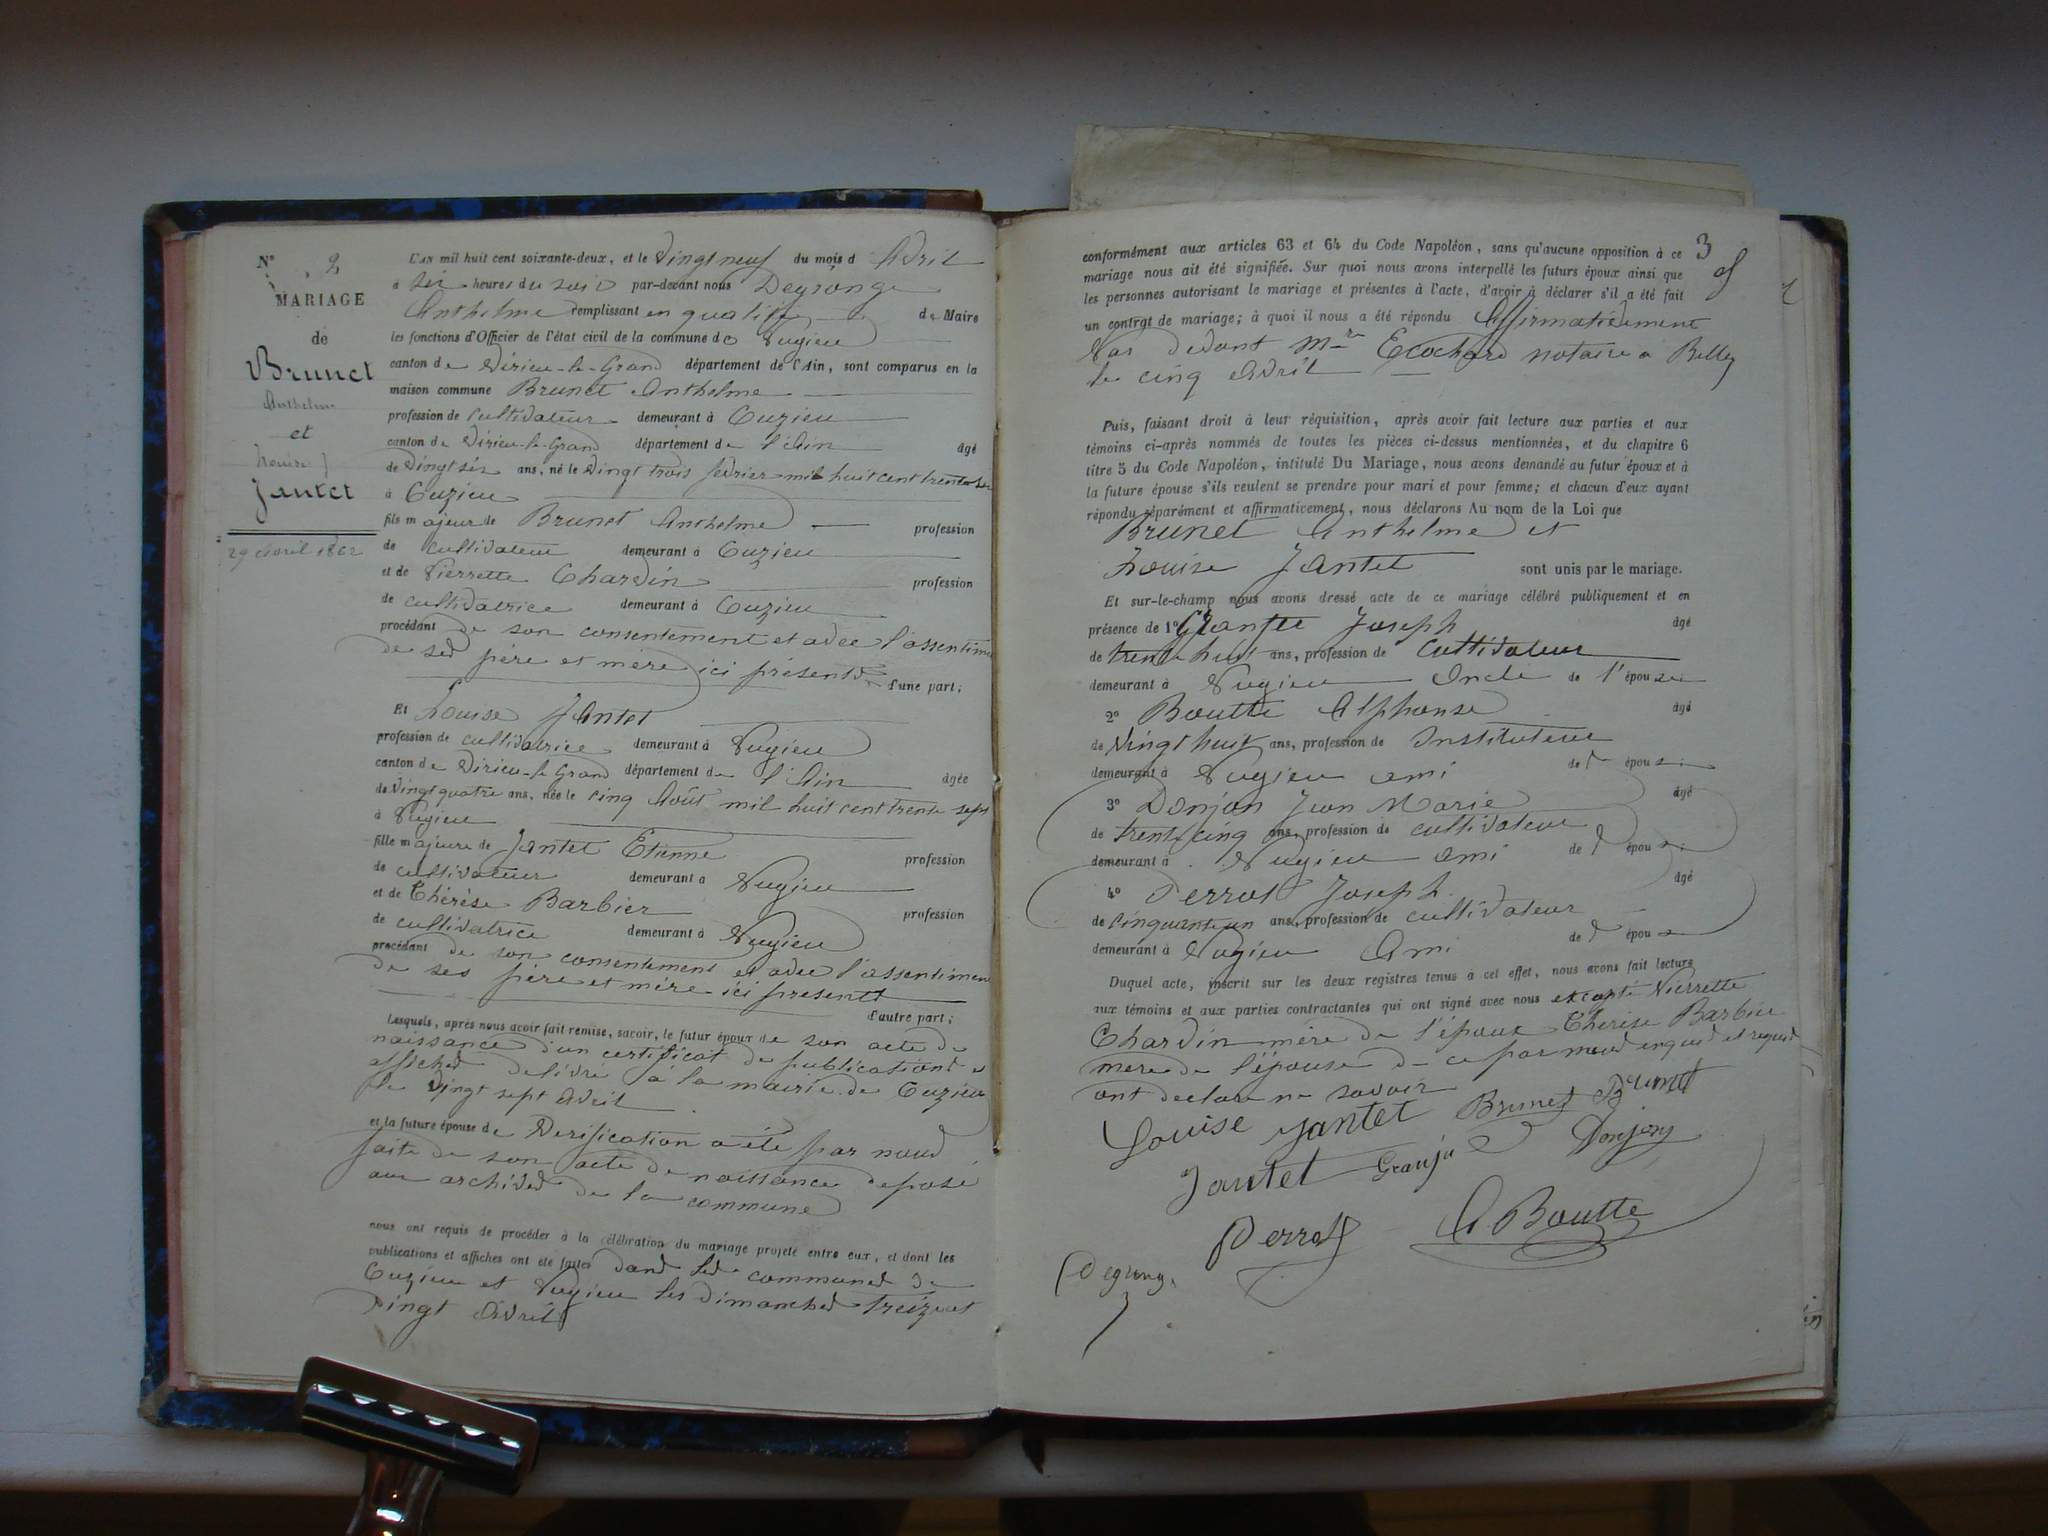 N° 2
MARIAGE
de
Brunet
Anthelme
et
Louise J
Jantet
29 avril 1862
L'AN mil huit cent soixante-deux, et le vingt neuf du mois d'Avril
à six heures du soir par-devant nous Degrange
Anthelme remplissant en qualité de Maire
les fonctions d'Officier de l'état civil de la commune de Pugieu
canton de Virieu-le-Grand département de l'Ain, sont comparus en la
maison commune Brunet Anthelme
profession de cultivateur demeurant à Cuzieu
canton de Virieu-le-Grand département de l'Ain âgé
de vingt six ans, né le vingt trois février mil huit cent trente six
à Cuzieu
fils majeur de Brunet Anthelme profession
de cultivateur demeurant à Cuzieu
et de Pierrette Chardin profession
de cultivatrice demeurant à Cuzieu
procédant de son consentement et avec l'assentiment
de ses père et mère ici présents d'une part;
Et Louise Jantet
profession de cultivatrice demeurant à Pugieu
canton de Virieu-le-Grand département de l'Ain âgée
de vingt quatre ans, née le cinq Août mil huit cent trente sept
à Pugieu
fille majeure de Jantet Etienne profession
de cultivateur demeurant à Pugieu
et de Thérèse Barbier profession
de cultivatrice demeurant à Pugieu
procédant de son consentement et avec l'assentiment
de ses père et mère ici présents
d'autre part;
Lesquels, après nous avoir fait remise, savoir, le futur époux de son acte de
naissance d'un certificat de publications et
affiches délivré à la mairie de Cuzieu
le vingt sept avril
et la future épouse de Vérification a été par nous
faite de son acte de naissance déposé
aux archives de la commune
nous ont requis de procéder à la célébration du mariage projeté entre eux, et dont les
publications et affiches ont été faites dans les communes de
Cuzieu et Pugieu les dimanches treize et
vingt Avril
3
conformément aux articles 63 et 64 du Code Napoléon, sans qu'aucune opposition à ce
mariage nous ait été signifiée. Sur quoi nous avons interpellé les futurs époux ainsi que
les personnes autorisant le mariage et présentes à l'acte, d'avoir à déclarer s'il a été fait
un contrat de mariage; à quoi il nous a été répondu Affirmativement
Par devant Mre Ecochard notaire a Belley
le cinq Avril
Puis, faisant droit à leur réquisition, après avoir fait lecture aux parties et aux
témoins ci-après nommés de toutes les pièces ci-dessus mentionnées, et du chapitre 6
titre 5 du Code Napoléon, intitulé Du Mariage, nous avons demandé au futur époux et à
la future épouse s'ils veulent se prendre pour mari et pour femme; et chacun d'eux ayant
répondu séparément et affirmativement, nous déclarons Au nom de la Loi que
Brunet Anthelme et
Louise Jantet sont unis par le mariage.
Et sur-le-champ nous avons dressé acte de ce mariage célébré publiquement et en
présence de 1° Joseph âgé
de trente huit ans, profession de cultivateur
demeurant à Pugieu Oncle de l'épouse
2° Boutte Alphonse âgé
de vingt huit ans, profession de Instituteur
demeurant à Pugieu ami de l'épouse
3° Donjon Jean Marie âgé
de trente cinq ans, profession de cultivateur
demeurant à Pugieu ami de l'épouse
4° Perrot Joseph âgé
de cinquante un ans, profession de cultivateur
demeurant à Pugieu Ami de l'épouse
Duquel acte, inscrit sur les deux registres tenus à cet effet, nous avons fait lecture
aux témoins et aux parties contractantes qui ont signé avec nous excepté Pierrette
Chardin mère de l'époux Thérèse Barbier
mère de l'épouse de ce par nous enquis et requis
ont déclaré ne savoir
Louise Jantet Brunet Brunet
Jantet Donjon
Perrot A. Boutte